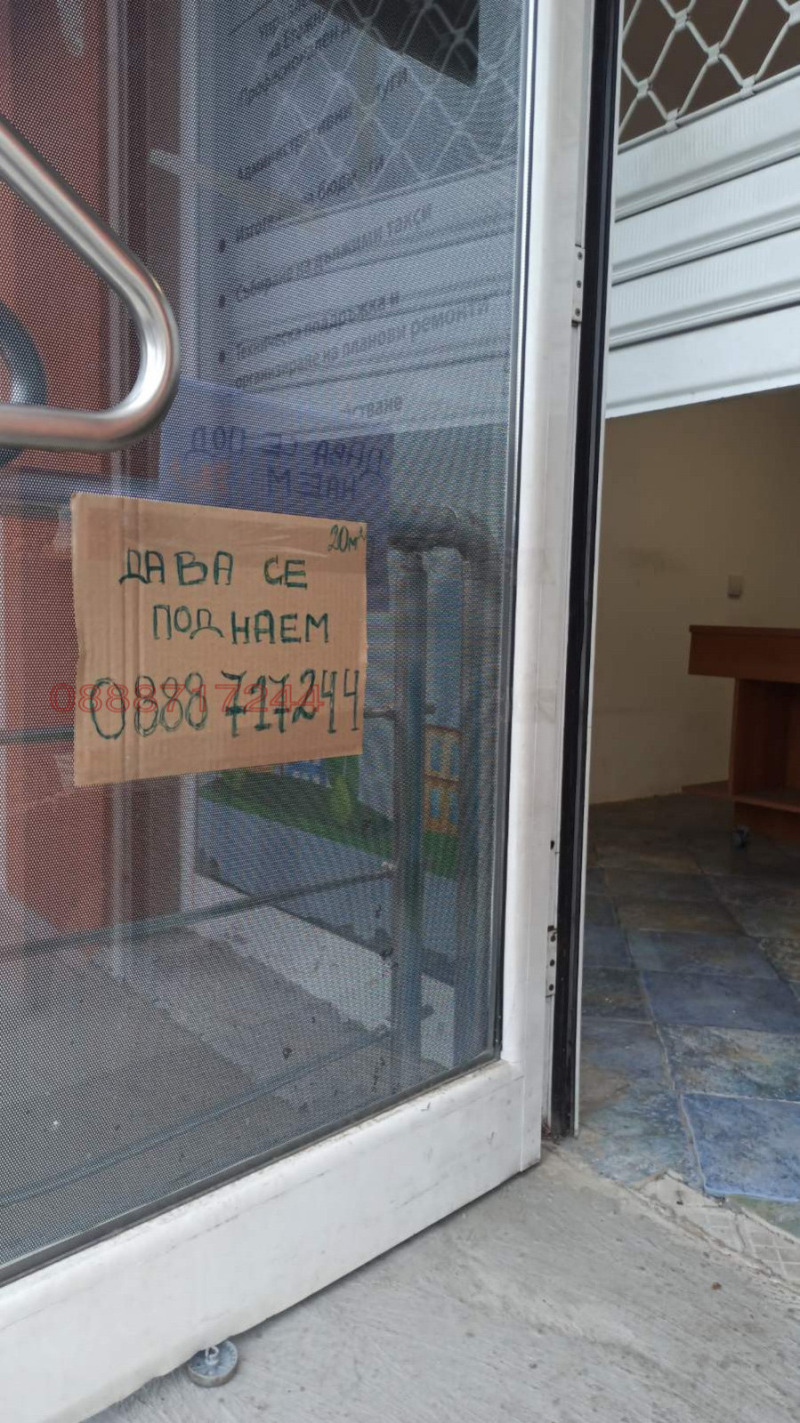 Административни услуги
Изготвяне на бюджети
Събиране на дължими такси
Техническа поддръжка и
организиране на планови ремонти
ДАВА СЕ ПОД
НАЕМ
20м²
ДАВА СЕ
ПОД НАЕМ
0888 717244
0888717244